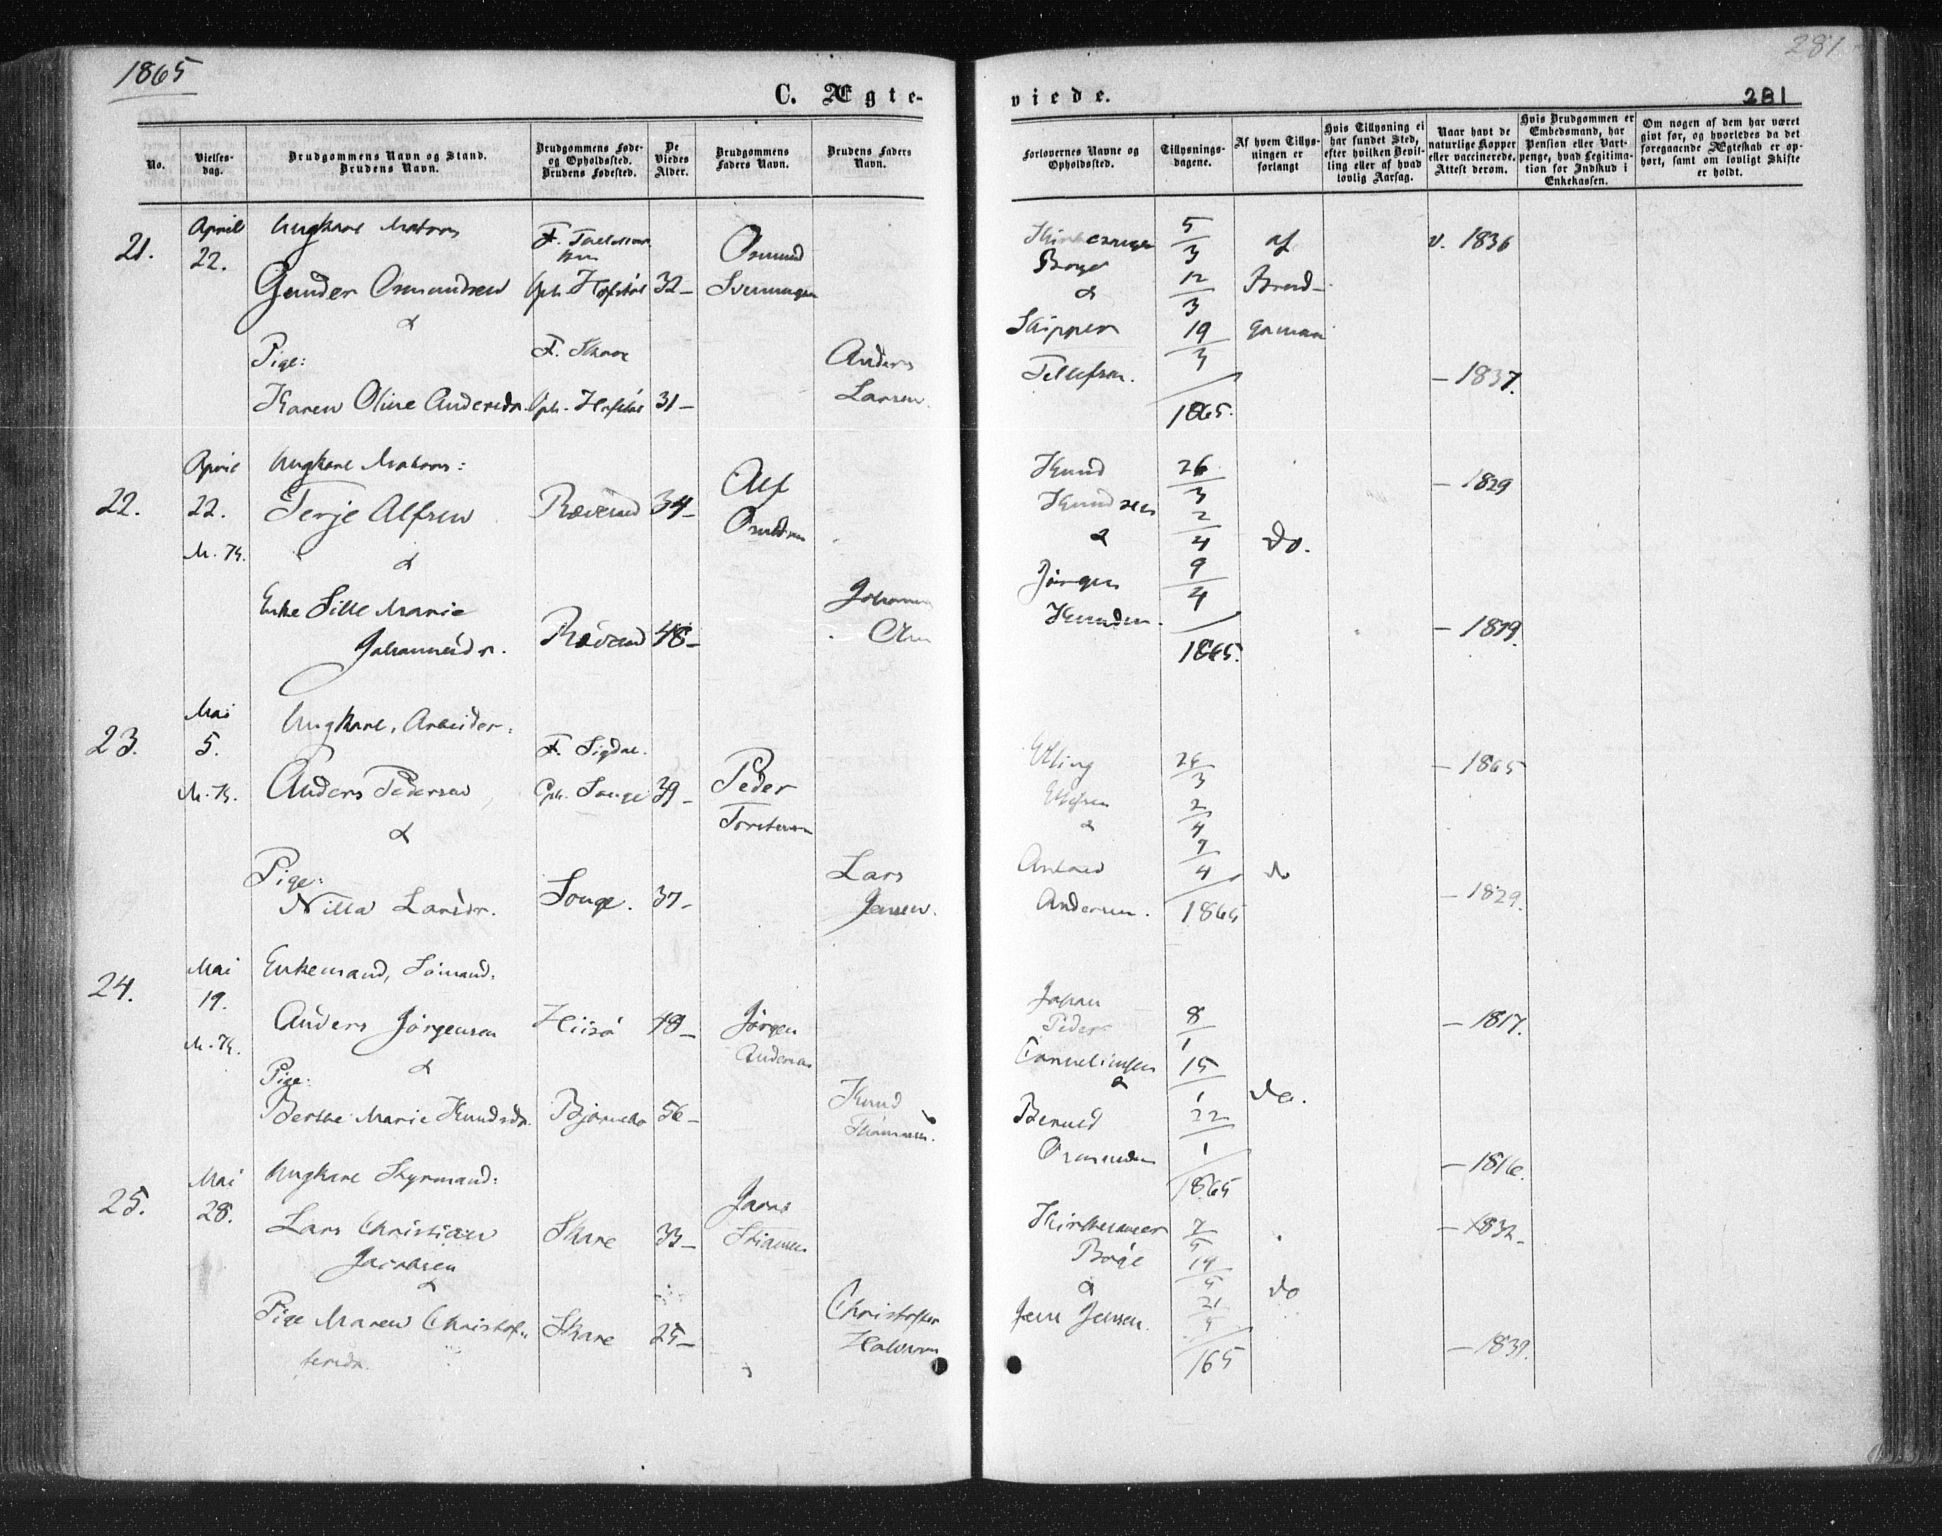 1865
281
C. Ægte-
viede.
281
No.
Vielses-
dag.
Brudgommens Navn og Stand.
Brudens Navn.
Brudgommens Føde-
og Opholdssted.
Brudens Fødested.
De
Viedes
Alder.
Brudgommens
Faders Navn.
Brudens Faders
Navn.
Forlovernes Navne og
Opholdssted.
Tillysnings-
dagene.
Af hvem Tillys-
ningen er
forlangt
Hvis Tillysning ei
har fundet Sted,
efter hvilken Bevil-
ling eller af hvad
lovlig Aarsag.
Naar havt de
naturlige Kopper
eller vaccinerede.
Attest derom.
Hvis Brudgommen er
Embedsmand, har
Pension eller Vart-
penge, hvad Legitima-
tion for Indskud i
Enkekassen.
Om nogen af dem har været
givt før, og hvorledes da det
foregaaende Ægteskab er op-
hørt, samt om lovligt Skifte
er holdt.
21.
April
22.
Ungkarl Matros
Gunder Osmundsen
&
Pige:
Karen Oline Andersdr.
F.
Oph.
32-
F. Skare
Oph.
31-
Osmund
Anders
Larsen.
&
Skipper
Tellefsen.
5/3
12/3
19/3
1865.
af
Brud-
v. 1836
- 1837.
22.
April
22.
M. K.
Ungkarl Matros:
Terje Alfsen
&
Enke Sille Marie
Johannesdr.
34-
48-
Alf
Knud
Knudsen
&
Jørgen
Knudsen.
26/3
2/4
9/4
1865.
Do.
- 1829
- 1819.
23.
Mai
5.
M. K.
Ungkarl, Arbeider:
Anders Pedersen
&
Pige:
Nilla Larsdr.
F. Sigdal.
Oph. Songe
39-
Songe.
37-
Peder
Lars
Jensen.
&
Andersen.
26/3
2/4
9/4
1865
do
- 1865
- 1829.
24.
Mai
19.
M. K.
Enkemand, Sømand:
Anders Jörgensen
&
Pige:
Berthe Marie Knudsdr.
Hisö
48-
56-
Jörgen
Andersen
Knud
Johan
Peder
&
8/1
15/1
22/1
1865
do.
- 1817.
- 1816.
25.
Mai
28.
Ungkarl Styrmand:
Lars Christian
Jacobsen
&
Pige Maren Christof-
fersdr.
Skare
33-
Skare
25-
Christoffer
Halvorsen
Kirkesanger
&
Jens Jensen.
7/5
14/5
21/5
/65
do
- 1832-
- 1839.